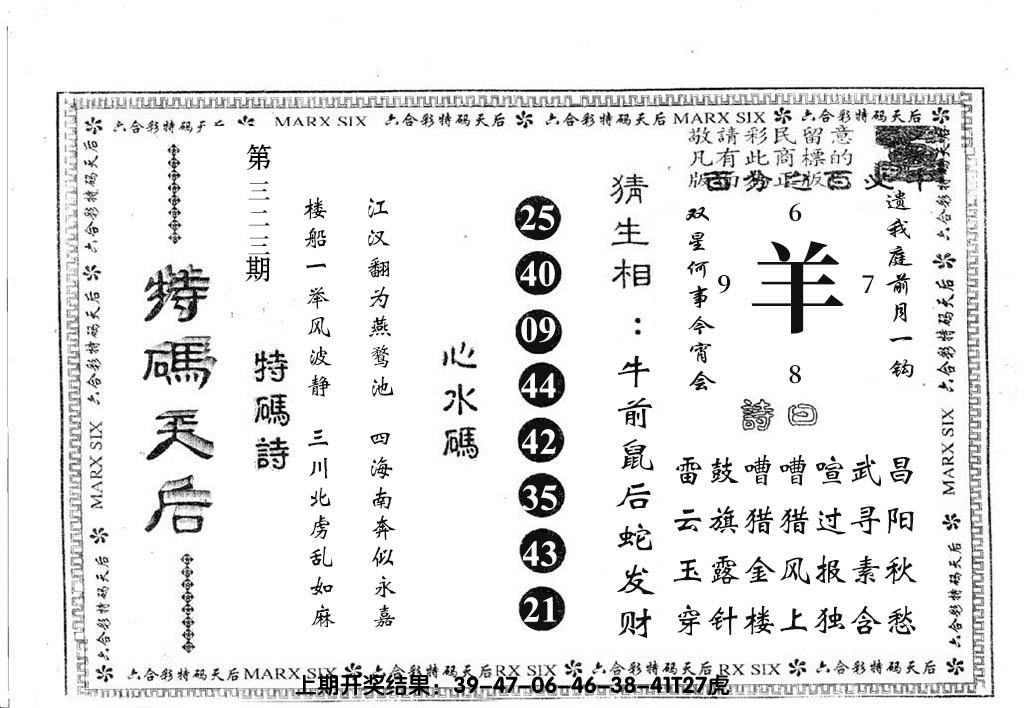 六合彩特码天后 MARX SIX 六合彩特码天后 六合彩特码天后 MARX SIX 六合彩特码天后
敬請彩民留意
凡有此商標的
版面为正版
遗我庭前月一钩
双星何事今宵会
6
9 羊 7
8
詩曰
昌阳秋愁
武寻素含
喧过报独
嘈猎风上
嘈猎金楼
鼓旗露针
雷云玉穿
猜生相：牛前鼠后蛇发财
25
40
09
44
42
35
43
21
心水碼
江汉翻为燕鹜池 四海南奔似永嘉
楼船一举风波静 三川北虏乱如麻
特碼詩
第三二三期
特碼天后
六合彩特码天后 六合彩特码天后 MARX SIX 六合彩特码天后
六合彩特码天后 六合彩特码天后 MARX SIX 六合彩特码天后
六合彩特码天后 MARX SIX 六合彩特码天后 RX SIX 六合彩特码天后 RX SIX 六合彩特码天后
上期开奖结果：39-47-06-46-38-41T27虎